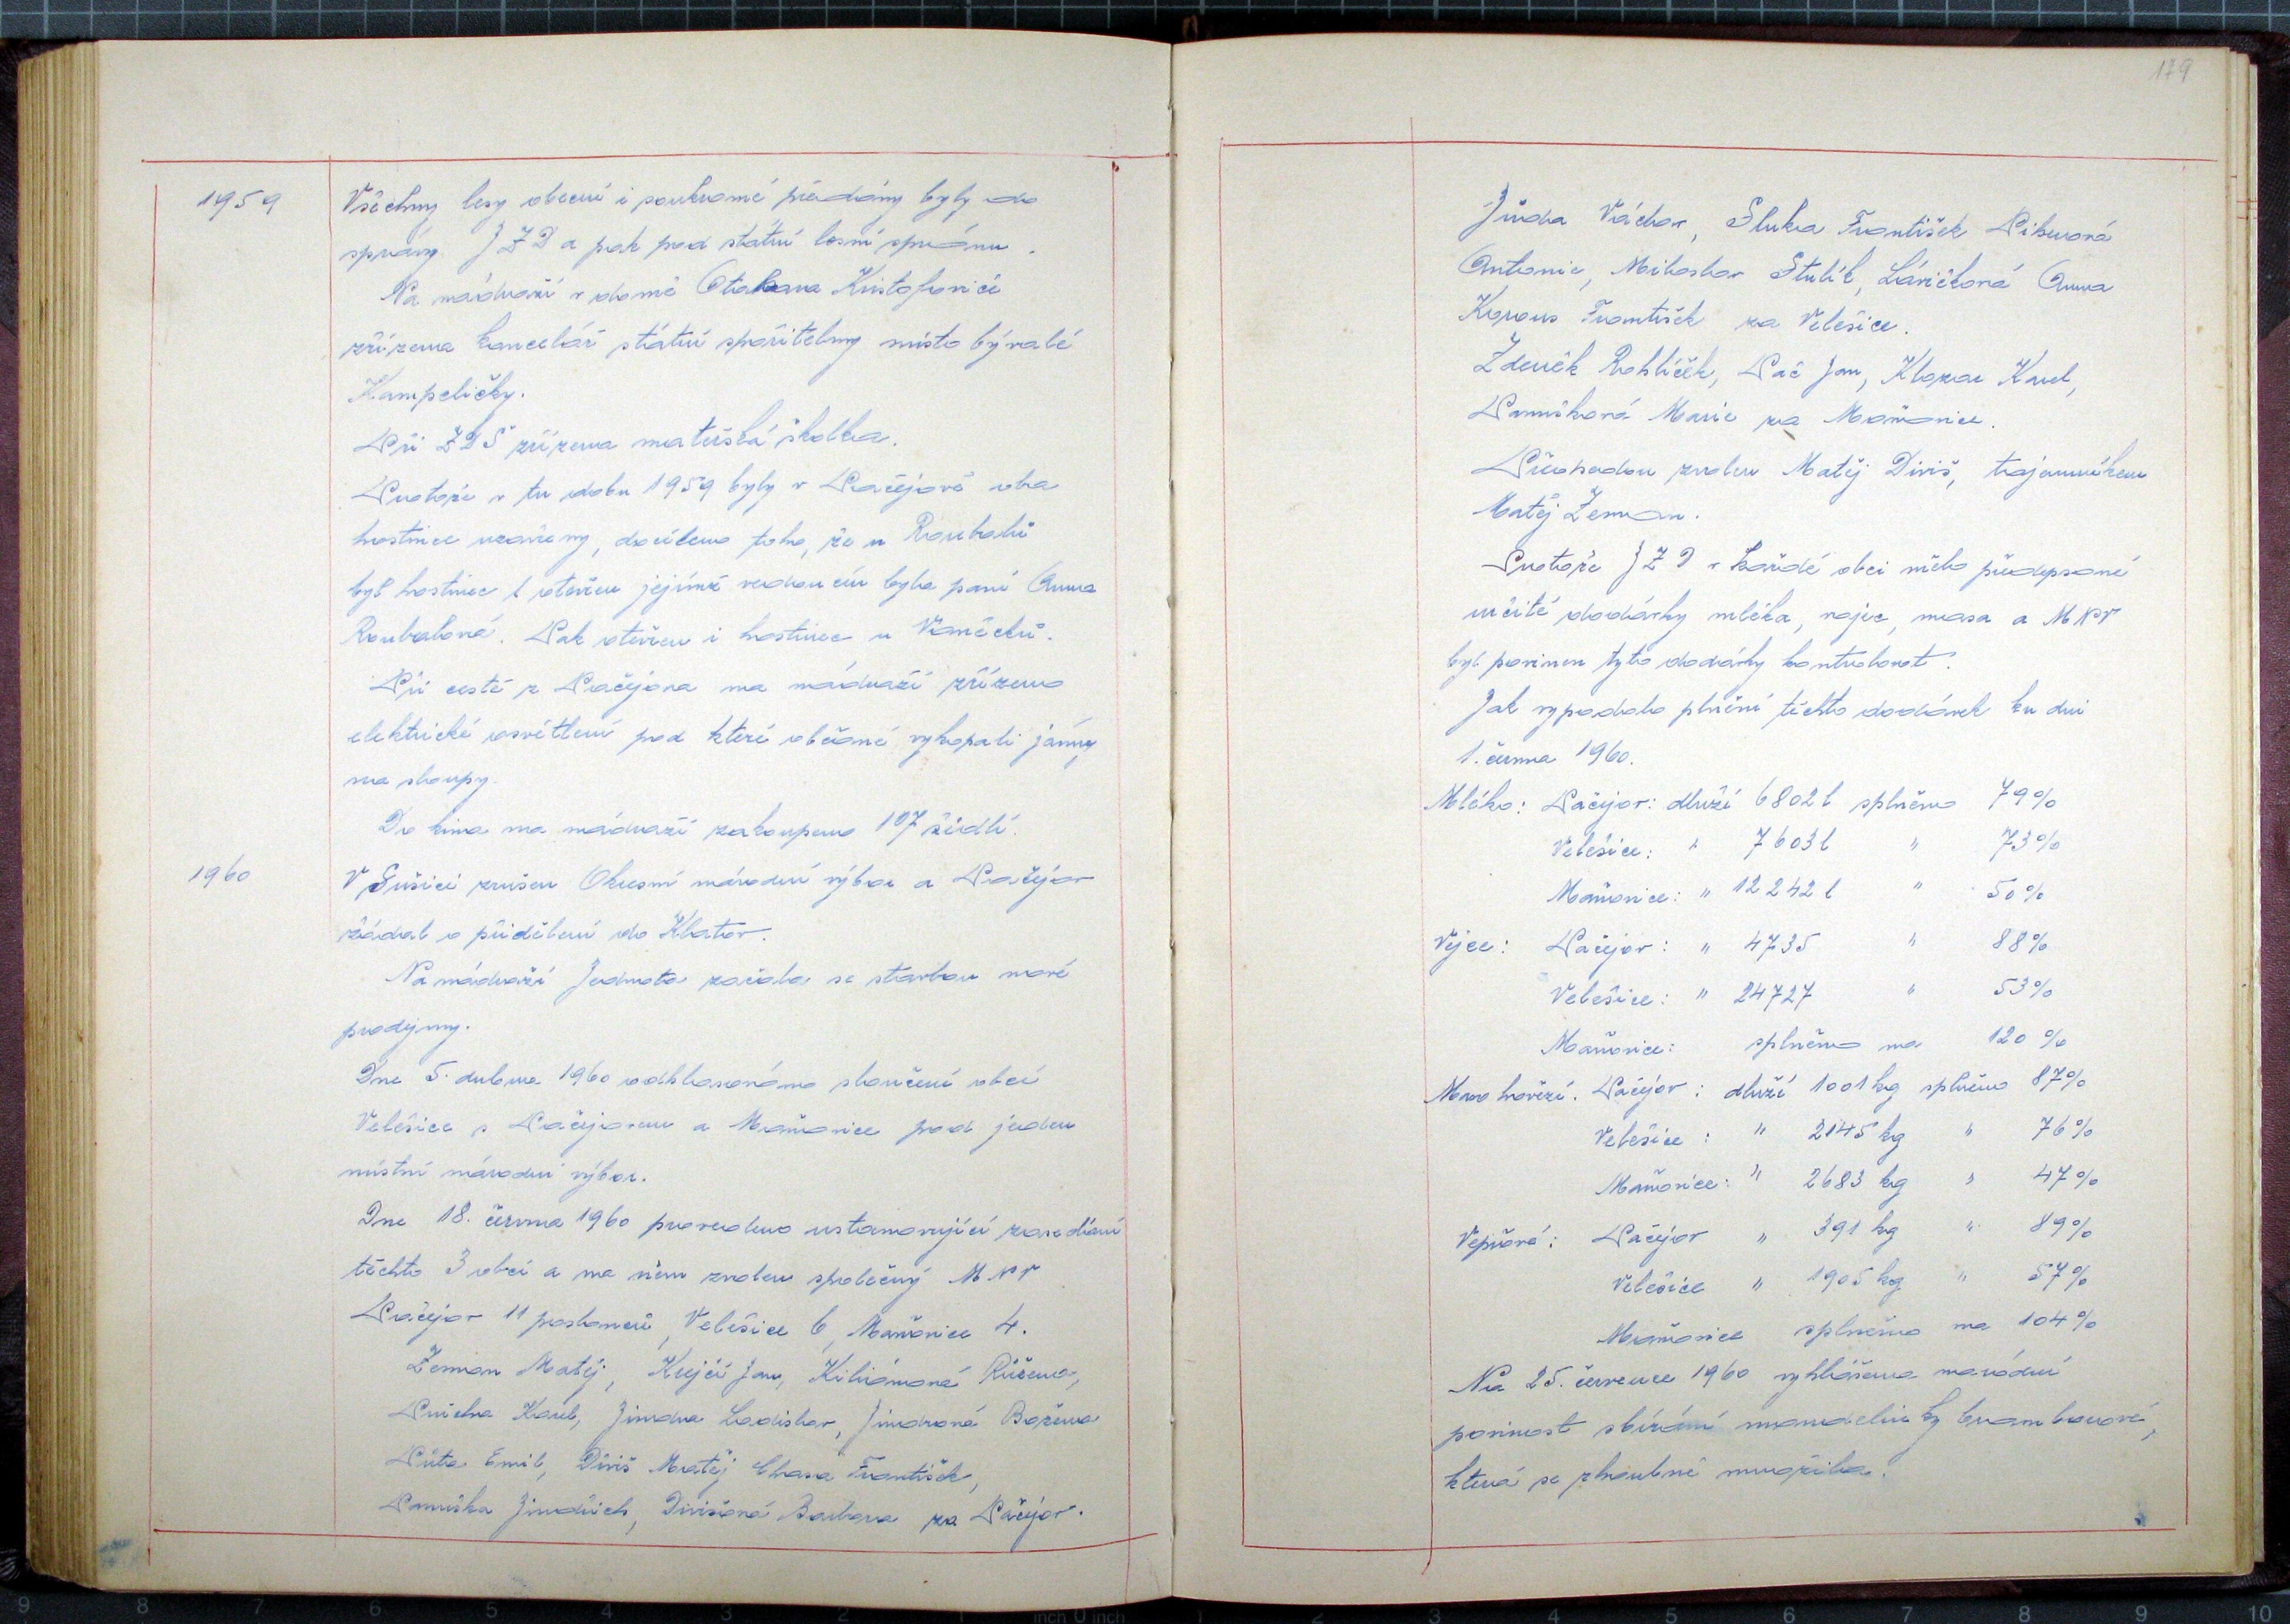 1959
Všechny lesy obecní i soukromé předány byly do
správy JZD a pak pod státní lesní správu.
Na nádraží v domě Otakara Kristofoviče
zřízena kancelář státní spořitelny místo bývalé
Kampeličky.
Při ZDŠ zřízena mateřská školka.
Protože v tu dobu 1959 byly v Pačejově oba
hostince uzavřeny, docíleno toho, že u Roubalů
byl hostinec otevřen jejímž vedoucím byla paní Anna
Roubalová. Pak otevřen i hostinec u Vaněčků.
Při cestě z Pačejova na nádraží zřízeno
elektrické osvětlení pod které občané vykopali jámy
na sloupy.
Do kina na nádraží zakoupeno 107 židlí.
1960
V Sušici zrušen Okresní národní výbor a Pačejov
žádal o přidělení do Klatov.
Na nádraží Jednota začala se stavbou nové
prodejny.
Dne 5. dubna 1960 odhlasováno sloučení obcí
Velešice s Pačejovem a Maňovice pod jeden
místní národní výbor.
Dne 18. června 1960 provedeno ustanovující zasedání
těchto 3 obcí a na něm zvolen společný MNV
Pačejov 11 poslanců, Velešice 6, Maňovice 4.
Zeman Matěj, Krejčí Jan, Kiliánová Růžena,
Karel, Jindra Ladislav, Jindrová Božena
Půta Emil, Diviš Matěj Chasa František,
Pavniška Jindřich, Divišová Barbora za Pačejov.
179
Jůda Václav, Sluka František Piherová
Antonie, Miloslav Stulík, Lávičková Anna
Korous František za Velešice.
Zdeněk Rohlíček, Pač Jan, Karel,
Marie za Maňovice.
Předsedou zvolen Matěj Diviš, tajemníkem
Matěj Zeman.
Protože JZD v každé obci mělo předepsané
určité dodávky mléka, vajec, masa a MNV
byl povinen tyto dodávky kontrolovat.
Jak vypadalo plnění těchto dodávek ku dni
1. června 1960.
Mléko: Pačejov: dluží 6802 l splněno 79%
Velešice: " 7603 l " 73%
Maňovice: " 12242 l " 50%
Vejce: Pačejov: " 4735 " 88%
Velešice: " 24727 " 53%
Maňovice: splněno na 120 %
Maso hovězí. Pačejov: dluží 1001 kg splněno 87%
Velešice: " 2145 kg " 76%
Maňovice: " 2683 kg " 47%
Vepřové: Pačejov " 391 kg " 89%
Velešice " 1905 kg " 57%
Maňovice splněno na 104%
Na 25. července 1960 vyhlášena národní
povinost sbírání mandelinky bramborové,
která se zhoubně množila.